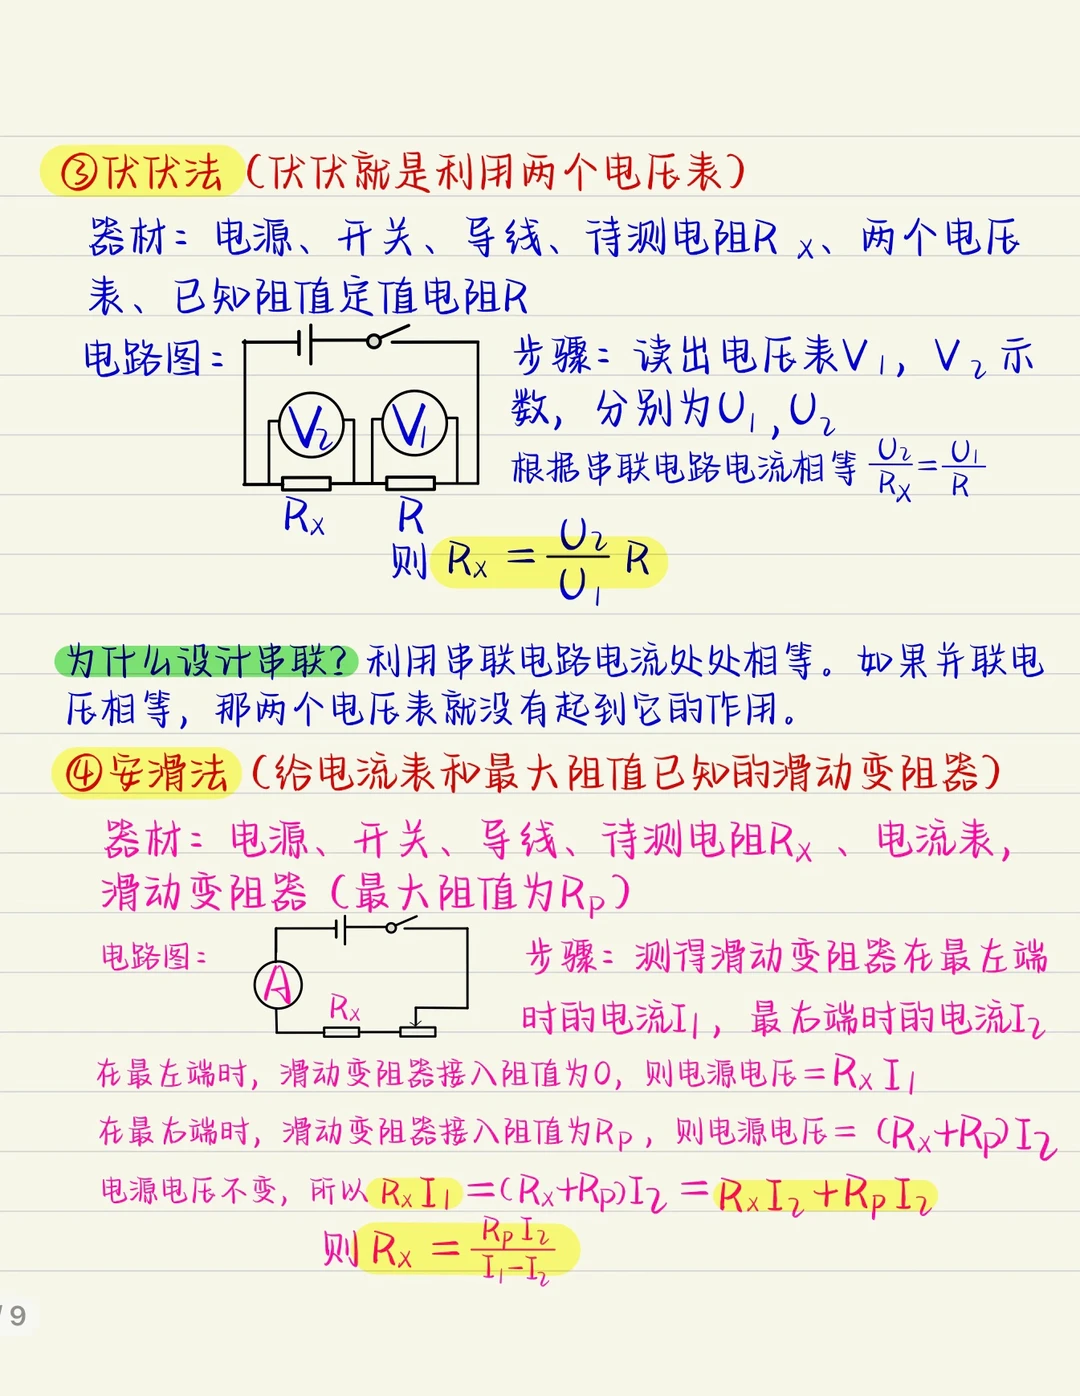 ③伏伏法（伏伏就是利用两个电压表）
器材：电源、开关、导线、待测电阻Rx、两个电压
表、已知阻值定值电阻R
电路图：
V₂ V₁
Rx R
步骤：读出电压表V₁，V₂示
数，分别为U₁,U₂
根据串联电路电流相等 U₂/Rx=U₁/R
则 Rx = U₂/U₁ R
为什么设计串联？利用串联电路电流处处相等。如果并联电
压相等，那两个电压表就没有起到它的作用。
④安滑法（给电流表和最大阻值已知的滑动变阻器）
器材：电源、开关、导线、待测电阻Rx、电流表，
滑动变阻器（最大阻值为Rp）
电路图：
A
Rx
步骤：测得滑动变阻器在最左端
时的电流I₁，最右端时的电流I₂
在最左端时，滑动变阻器接入阻值为0，则电源电压=RxI₁
在最右端时，滑动变阻器接入阻值为Rp，则电源电压=(Rx+Rp)I₂
电源电压不变，所以RxI₁=(Rx+Rp)I₂=RxI₂+RpI₂
则 Rx = RpI₂/I₁-I₂
/9